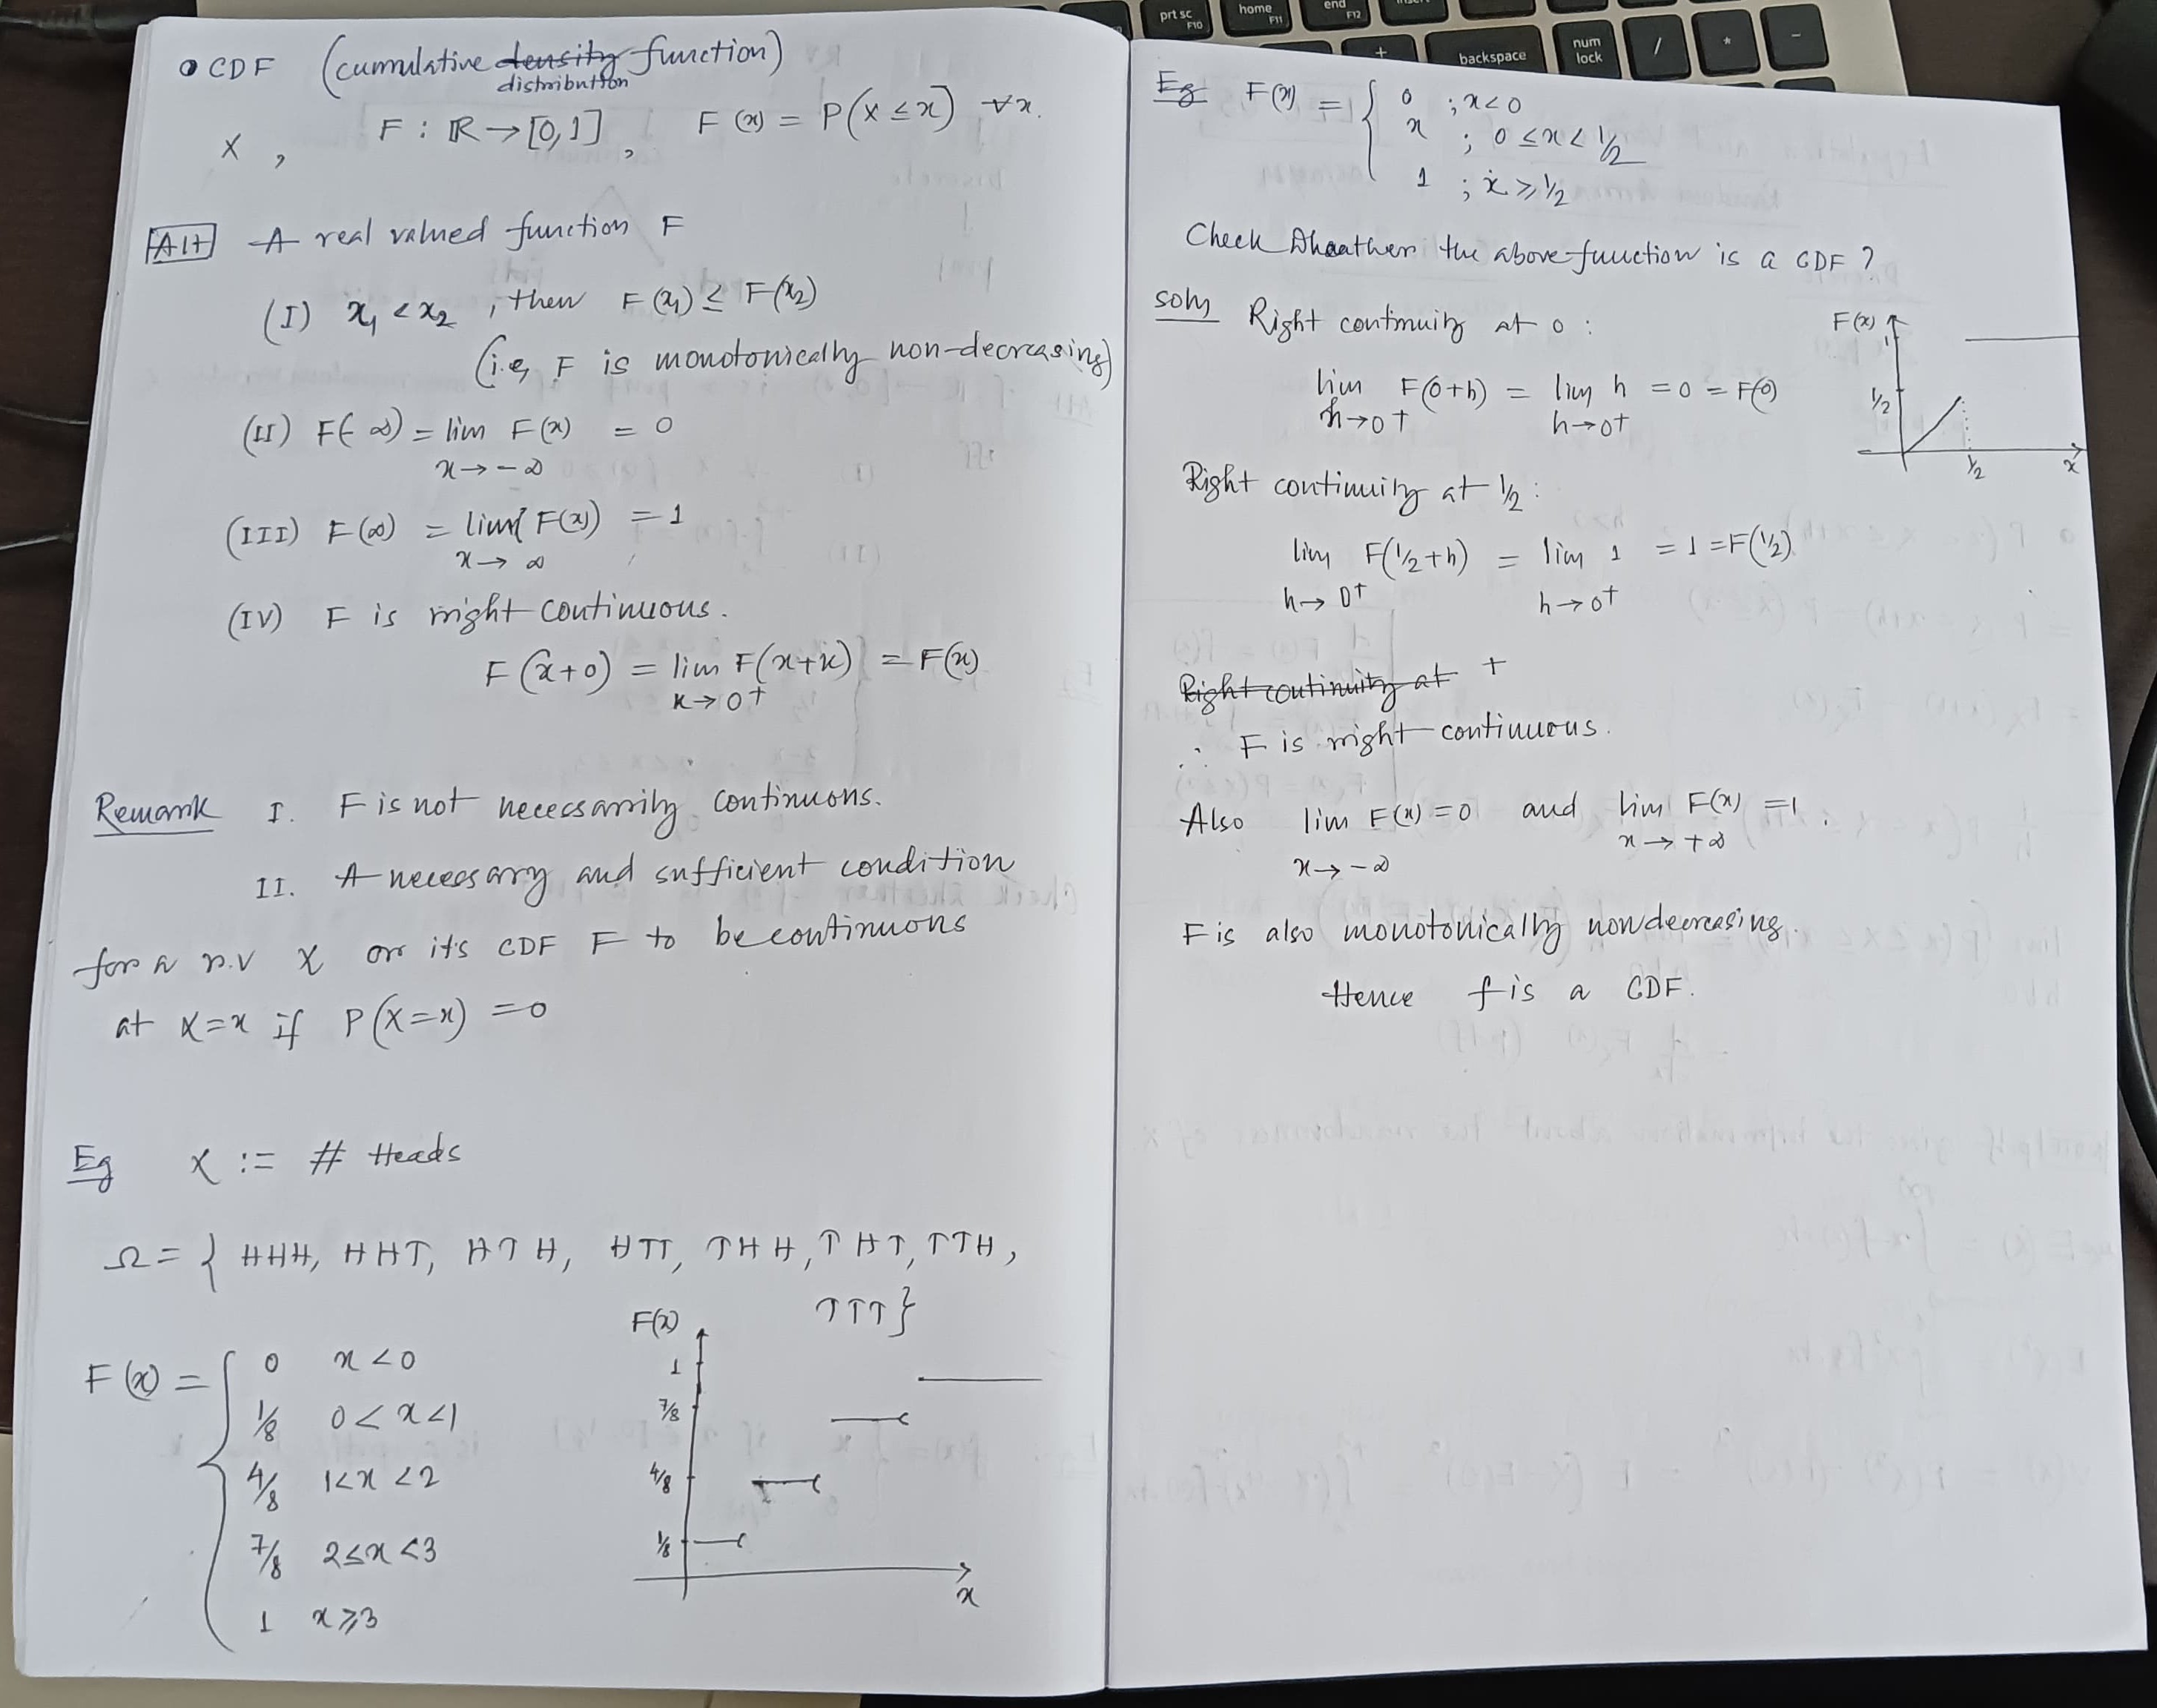 prt sc F10
home F11
end F12
backspace
num lock
/
*
-
+
• CDF (cummulative density function)
distribution
X , F : ℝ → [0,1] , F(x) = P(X ≤ x) ∀x.
Alt A real valued function F
(I) x₁ < x₂ , then F(x₁) ≤ F(x₂)
(i.e, F is monotonically non-decreasing)
(II) F(-∞) = lim F(x) = 0
x → -∞
(III) F(∞) = lim F(x) = 1
x → ∞
(IV) F is right continuous.
F(x+0) = lim F(x+k) = F(x)
k → 0+
Remark I. F is not necessarily continuous.
II. A necessary and sufficient condition
for a r.v X or its CDF F to be continuous
at X=x if P(X=x) = 0
Eg X := # Heads
Ω = { HHH, HHT, HTH, HTT, THH, THT, TTH,
TTT}
F(x) = { 0 x < 0
1/8 0 < x < 1
4/8 1 < x < 2
7/8 2 ≤ x < 3
1 x ≥ 3
F(x)
1
7/8
4/8
1/8
x
Eg F(x) = { 0 ; x < 0
x ; 0 ≤ x < 1/2
1 ; x ≥ 1/2
Check the above function is a CDF ?
soln Right continuity at 0 :
lim F(0+h) = lim h = 0 = F(0)
h → 0+ h → 0+
F(x)
1
1/2
1/2
x
Right continuity at 1/2 :
lim F(1/2+h) = lim 1 = 1 = F(1/2)
h → 0+ h → 0+
Right continuity at +
∴ F is right continuous.
Also lim F(x) = 0 and lim F(x) = 1.
x → -∞ x → +∞
F is also monotonically nondecreasing.
Hence f is a CDF.